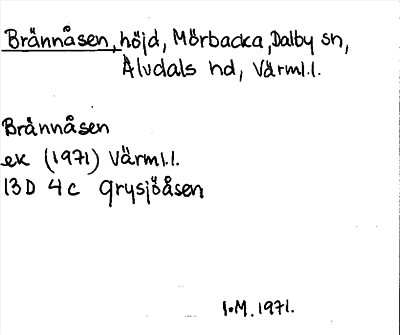 Brännåsen, höjd, Mörbacka, Dalby sn,
Älvdals hd, Värml.l.
Brännåsen
ek (1971) Värml.l.
13D 4c Grysjöåsen
I.M. 1971.